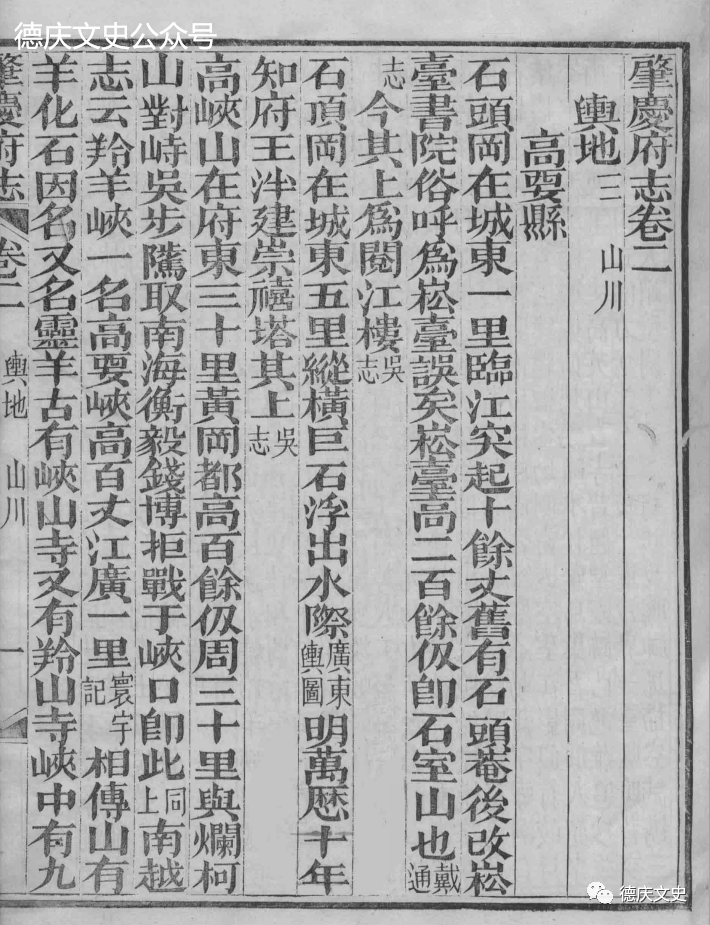 德庆文史公众号
肇慶府志卷二
輿地二 山川
高要縣
石頭岡在城東一里臨江突起十餘丈舊有石頭菴後改崧
臺書院俗呼爲崧臺誤矣崧臺高二百餘仭卽石室山也戴通
志今其上爲閱江樓吳志
石頂岡在城東五里縱橫巨石浮出水際廣東輿圖明萬歷十年
知府王泮建崇禧塔其上吳志
高峽山在府東三十里黃岡都高百餘仭周三十里與爛柯
山對峙吳步隲取南海衡毅錢博拒戰于峽口卽此同上南越
志云羚羊峽一名高要峽高百丈江廣一里寰宇記相傳山有
羊化石因名又名靈羊古有峽山寺又有羚山寺峽中有九
肇慶府志 卷二 輿地 山川 一
德庆文史